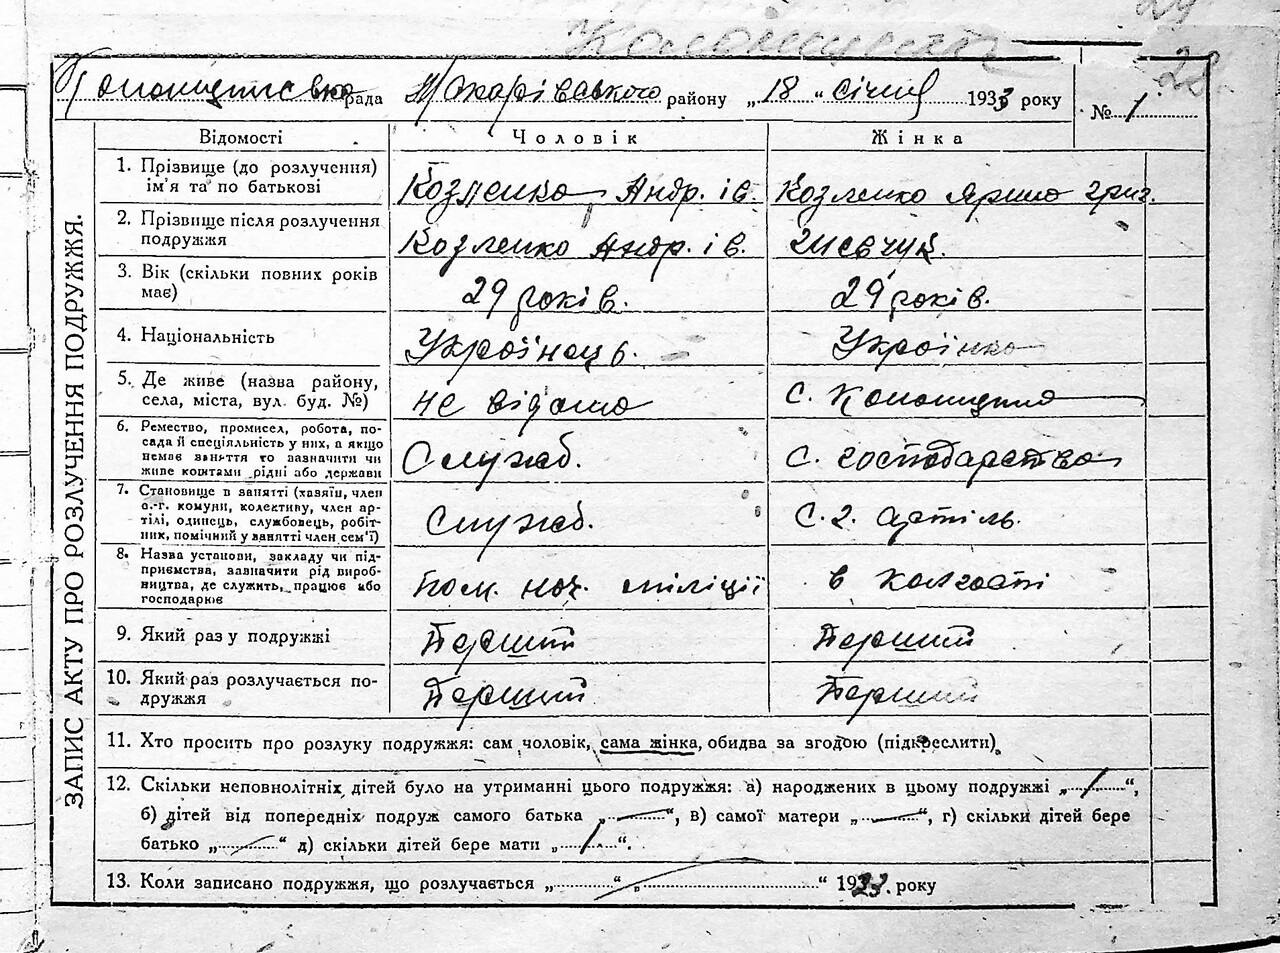 28
рада Макарівського району „18“ січня 1933 року
№ 1
ЗАПИС АКТУ ПРО РОЗЛУЧЕННЯ ПОДРУЖЖЯ.
Відомості Чоловік Жінка
1. Прізвище (до розлучення) ім'я та по батькові
Козленко Андр. Ів. Козленко Ярина Григ.
2. Прізвище після розлучення подружжя
Козленко Андр. Ів. Шевчук.
3. Вік (скільки повних років має)
29 років. 29 років.
4. Національність Українець. Українка
5. Де живе (назва району, села, міста, вул. буд. №)
не відомо с.
6. Ремество, промисел, робота, по-
сада й спеціяльність у них, а якщо
немає заняття то зазначити чи
живе коштами рідні або держави
Служб. с. господарство
7. Становище в занятті (хазяїн, член
с.-г. комуни, колективу, член ар-
тілі, одинець, службовець, робіт-
ник, помічний у занятті член сем'ї)
служб. с. г. артіль.
8. Назва установи, закладу чи під-
приємства, зазначити рід вироб-
ництва, де служить, працює або
господарює
пом. нач. міліції в колгоспі
9. Який раз у подружжі Перший Перший
10. Який раз розлучається по-
дружжя
Перший Перший
11. Хто просить про розлуку подружжя: сам чоловік, сама жінка, обидва за згодою (підкреслити).
12. Скільки неповнолітніх дітей було на утриманні цього подружжя: а) народжених в цьому подружжі „1“,
б) дітей від попередніх подруж самого батька „—“, в) самої матери „—“, г) скільки дітей бере
батько „—“ д) скільки дітей бере мати „1“.
13. Коли записано подружжя, що розлучається „ “ „ “ 19 року